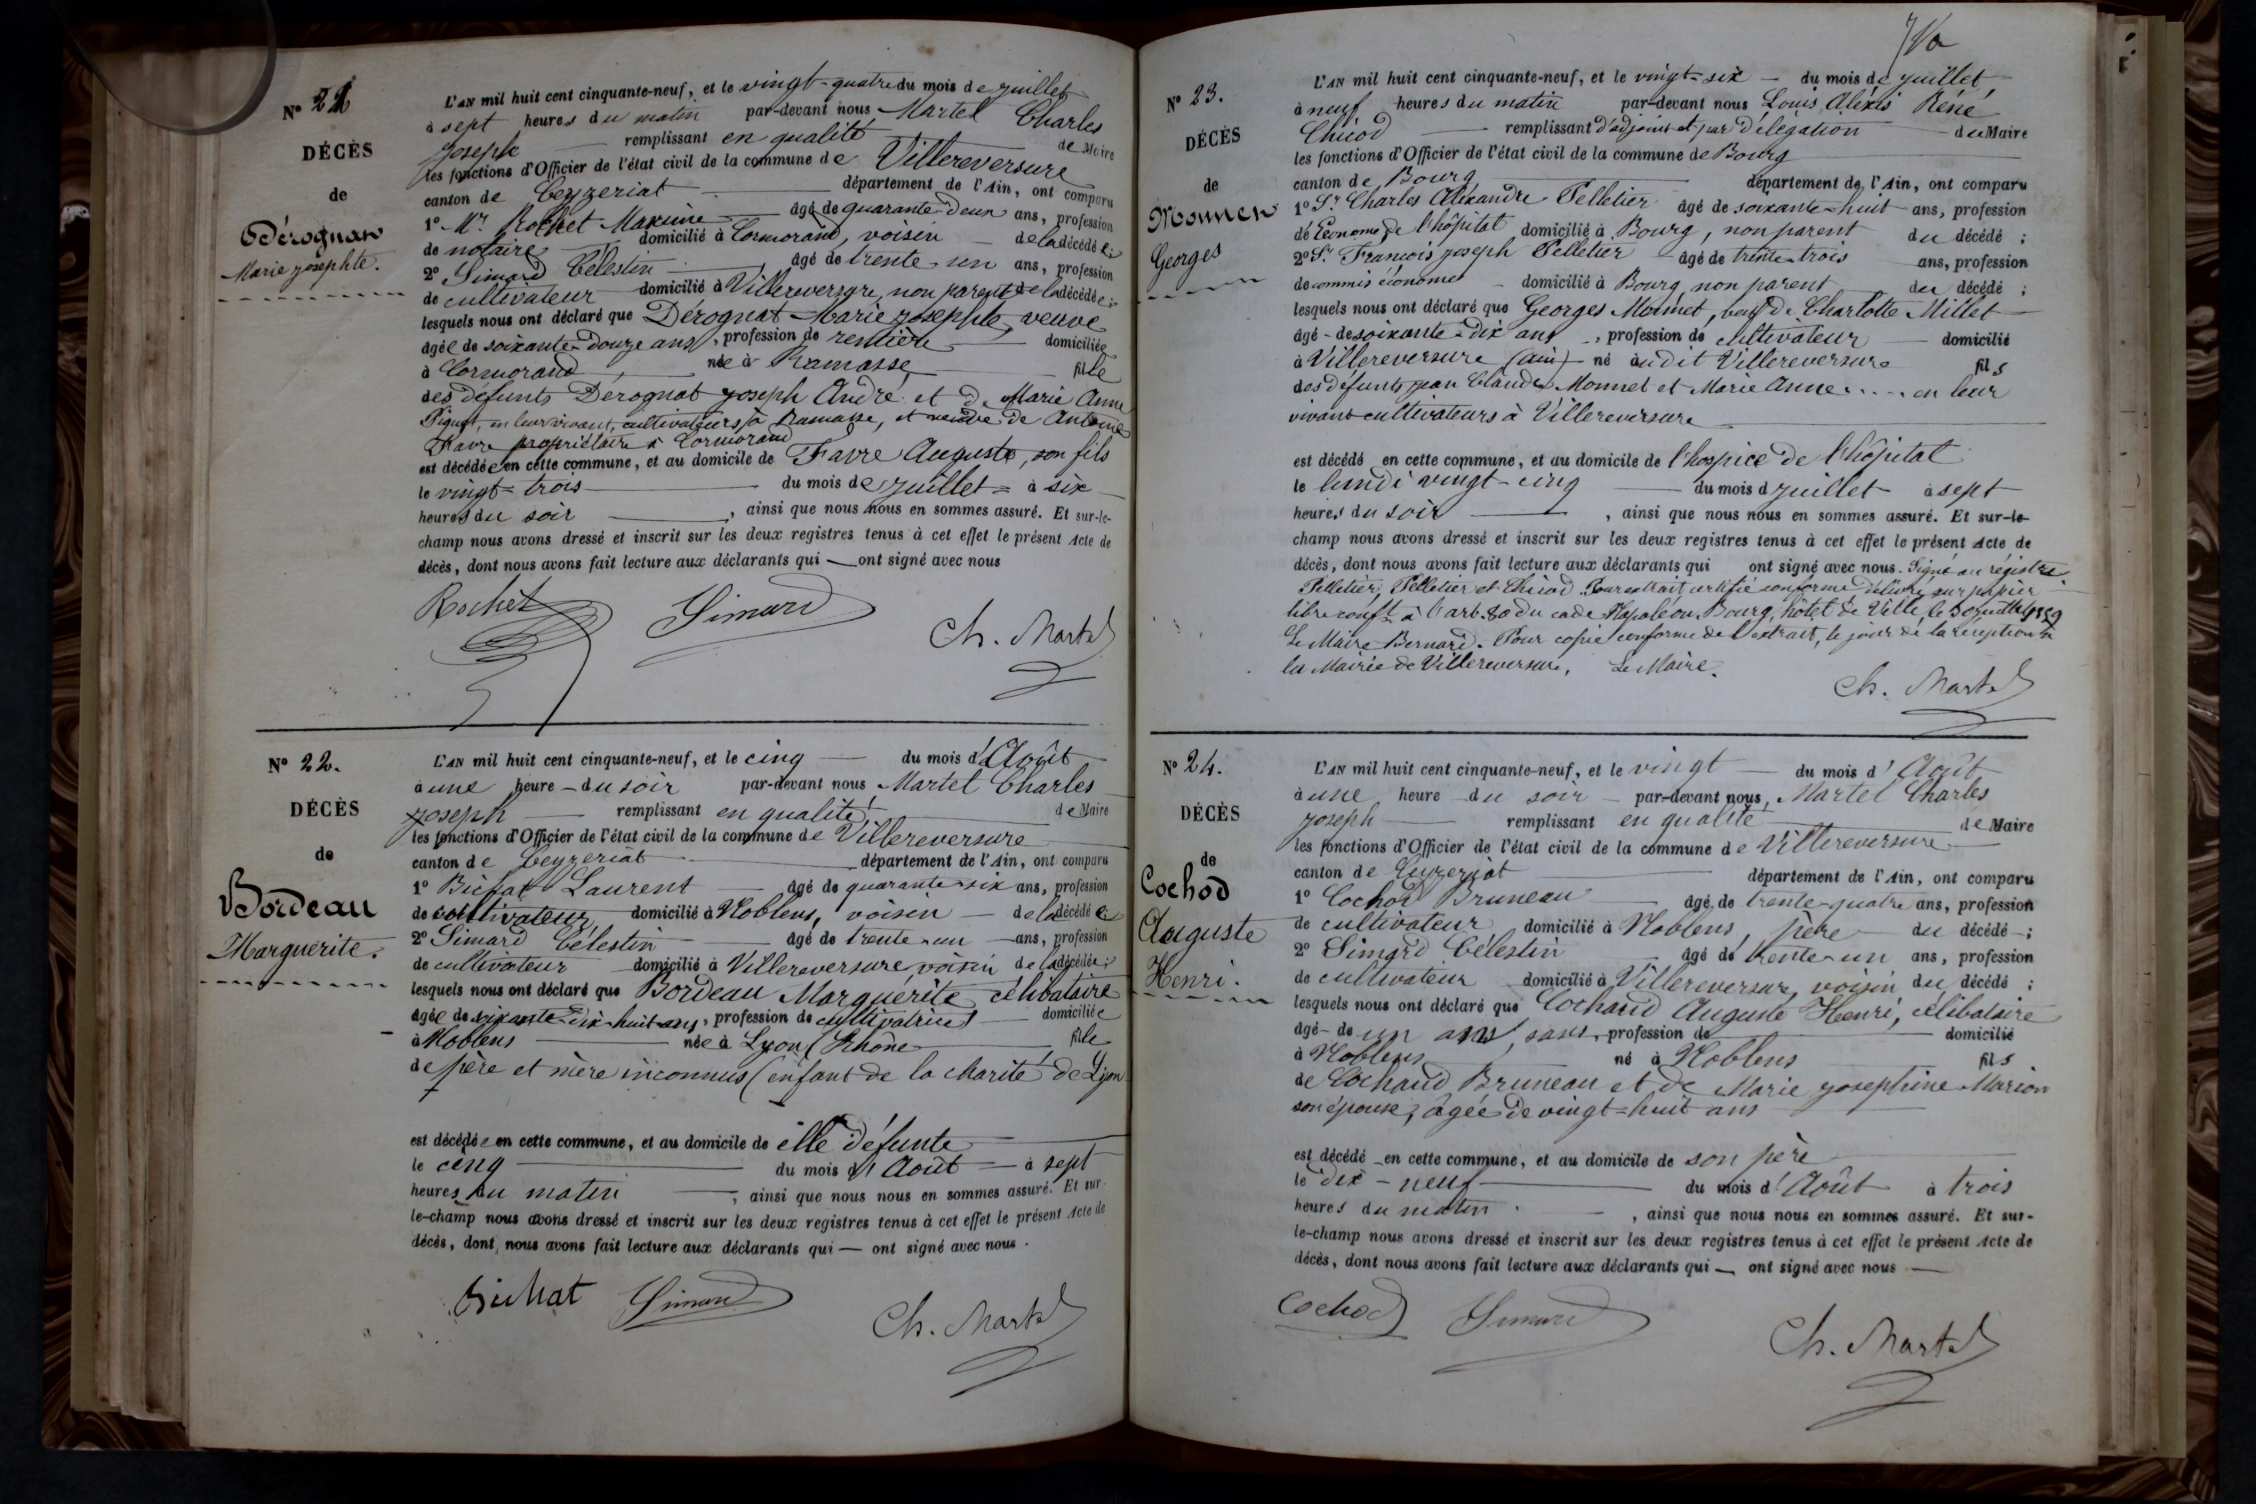 N° 21
DÉCÈS
de
Dérognat
Marie Josephte.
L'AN mil huit cent cinquante-neuf, et le vingt-quatre du mois de juillet
à sept heures du matin par-devant nous Martel Charles
Joseph remplissant en qualité de Maire
les fonctions d'Officier de l'état civil de la commune de Villereversure
canton de Ceyzeriat département de l'Ain, ont comparu
1° Mr Rochet Maxime âgé de quarante-deux ans, profession
de notaire domicilié à Cormorand, voisin de la décédée;
2° Simard Célestin âgé de trente-un ans, profession
de cultivateur domicilié à Villereversure, non parent de la décédée;
lesquels nous ont déclaré que Dérognat Marie Josephte, veuve
âgée de soixante-douze ans, profession de rentière domiciliée
à Cormorand née à Ramasse fille
des défunts Dérognat Joseph André et de Marie Anne
en leur vivant, cultivateurs à Ramasse, et veuve de Antoine
Favre propriétaire à Cormorand
est décédée en cette commune, et au domicile de Favre Auguste, son fils
le vingt-trois du mois de juillet à six
heures du soir, ainsi que nous nous en sommes assuré. Et sur-le-
champ nous avons dressé et inscrit sur les deux registres tenus à cet effet le présent Acte de
décès, dont nous avons fait lecture aux déclarants qui — ont signé avec nous
Rochet Simard Ch. Martel
N° 22.
DÉCÈS
de
Bordeau
Marguerite.
L'AN mil huit cent cinquante-neuf, et le cinq du mois d'Août
à une heure du soir par-devant nous Martel Charles
Joseph remplissant en qualité de Maire
les fonctions d'Officier de l'état civil de la commune de Villereversure
canton de Ceyzeriat département de l'Ain, ont comparu
1° Bichat Laurent âgé de quarante-six ans, profession
de cultivateur domicilié à Noblens, voisin de la décédée
2° Simard Célestin âgé de trente-un ans, profession
de cultivateur domicilié à Villereversure voisin de la décédée;
lesquels nous ont déclaré que Bordeau Marguerite célibataire
âgée de soixante-dix-huit ans, profession de cultivatrice domiciliée
à Noblens née à Lyon (Rhône fille
de père et mère inconnus (enfant de la charité de Lyon
est décédée en cette commune, et au domicile de elle défunte
le cinq du mois d'Août à sept
heures du matin, ainsi que nous nous en sommes assuré. Et sur-
le-champ nous avons dressé et inscrit sur les deux registres tenus à cet effet le présent Acte de
décès, dont nous avons fait lecture aux déclarants qui — ont signé avec nous.
Bichat Simard Ch. Martel
N° 23.
DÉCÈS
de
Monnet
Georges
L'AN mil huit cent cinquante-neuf, et le vingt-six du mois de juillet,
à neuf heures du matin par-devant nous Louis Aléxis Réné
Chicod remplissant d'adjoint et par délégation du Maire
les fonctions d'Officier de l'état civil de la commune de Bourg
canton de Bourg département de l'Ain, ont comparu
1° Sr Charles Aléxandre Pelletier âgé de soixante-huit ans, profession
de Économe de l'hôpital domicilié à Bourg, non parent du décédé;
2° Sr François Joseph Pelletier âgé de trente-trois ans, profession
de commis économe domicilié à Bourg non parent du décédé;
lesquels nous ont déclaré que Georges Monnet, veuf de Charlotte Millet
âgé de soixante-dix ans, profession de cultivateur domicilié
à Villereversure (ain) né audit Villereversure fils
des défunts Jean Claude Monnet et Marie Anne.... en leur
vivant cultivateurs à Villereversure
est décédé en cette commune, et au domicile de l'hospice de l'hôpital
le lundi vingt-cinq du mois d juillet à sept
heures du soir, ainsi que nous nous en sommes assuré. Et sur-le-
champ nous avons dressé et inscrit sur les deux registres tenus à cet effet le présent Acte de
décès, dont nous avons fait lecture aux déclarants qui ont signé avec nous. Signé au régistre
Pelletier, Pelletier et Chicod. Pour extrait certifié conforme délivré sur papier
libre à l'art. 80 du code Napoléon. Bourg, hôtel de Ville, le juillet 1859
Le Maire Bernard. Pour copie conforme de l'extrait, le jour de la réception à
la Mairie de Villereversure, Le Maire.
Ch. Martel
N° 24.
DÉCÈS
de
Cochod
Auguste
Henri.
L'AN mil huit cent cinquante-neuf, et le vingt du mois d'Août
à une heure du soir par-devant nous, Martel Charles
Joseph remplissant en qualité de Maire
les fonctions d'Officier de l'état civil de la commune de Villereversure
canton de Ceyzeriat département de l'Ain, ont comparu
1° Cochod Bruneau âgé de trente-quatre ans, profession
de cultivateur domicilié à Noblens, père du décédé;
2° Simard Célestin âgé de trente-un ans, profession
de cultivateur domicilié à Villereversure, voisin du décédé;
lesquels nous ont déclaré que Cochaud Auguste Henri, célibataire
âgé de un ans, sans, profession de domicilié
à Noblens né à Noblens fils
de Cochaud Bruneau et de Marie Josephine Marion
son épouse, âgée de vingt-huit ans
est décédé en cette commune, et au domicile de son père
le dix-neuf du mois d'Août à trois
heures du matin, ainsi que nous nous en sommes assuré. Et sur-
le-champ nous avons dressé et inscrit sur les deux registres tenus à cet effet le présent Acte de
décès, dont nous avons fait lecture aux déclarants qui — ont signé avec nous
Cochod Simard Ch. Martel